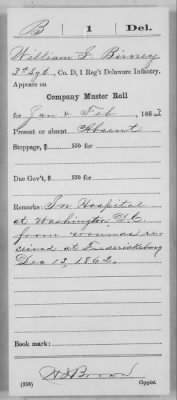 B | 1 | Del.
William J Birney
3d Sgt, Co. D, 1 Reg't Delaware Infantry.
Appears on
Company Muster Roll
for Jan & Feb, 1863
Present or absent Absent
Stoppage, $ 100 for
Due Gov't, $ 100 for
Remarks: In Hospital
at Washington D.C.
from wounds re-
ceived at Fredericksburg
Dec 13, 1862.
Book mark:
Brown
(358) Copyist.